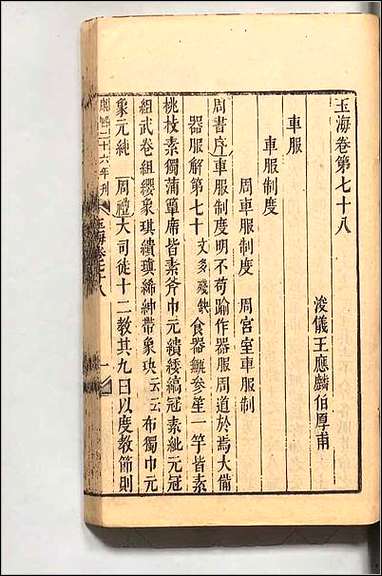 玉海卷第七十八
浚儀王應麟伯厚甫
車服
車服制度
周車服制度　周宮室車服制
周書序車服制度明不苟踰作器服周道於焉大備
器服解第七十文多殘缺食器甒參笙一竽皆素
桃枝素獨蒲簟席皆素斧巾元繢緌縞冠素紕元冠
組武卷組纓象琪繢瑱絺紳帶象玦云云布獨巾元
象元純　周禮大司徒十二教其九曰以度教節則
二十六年刊　玉海卷七十八　一